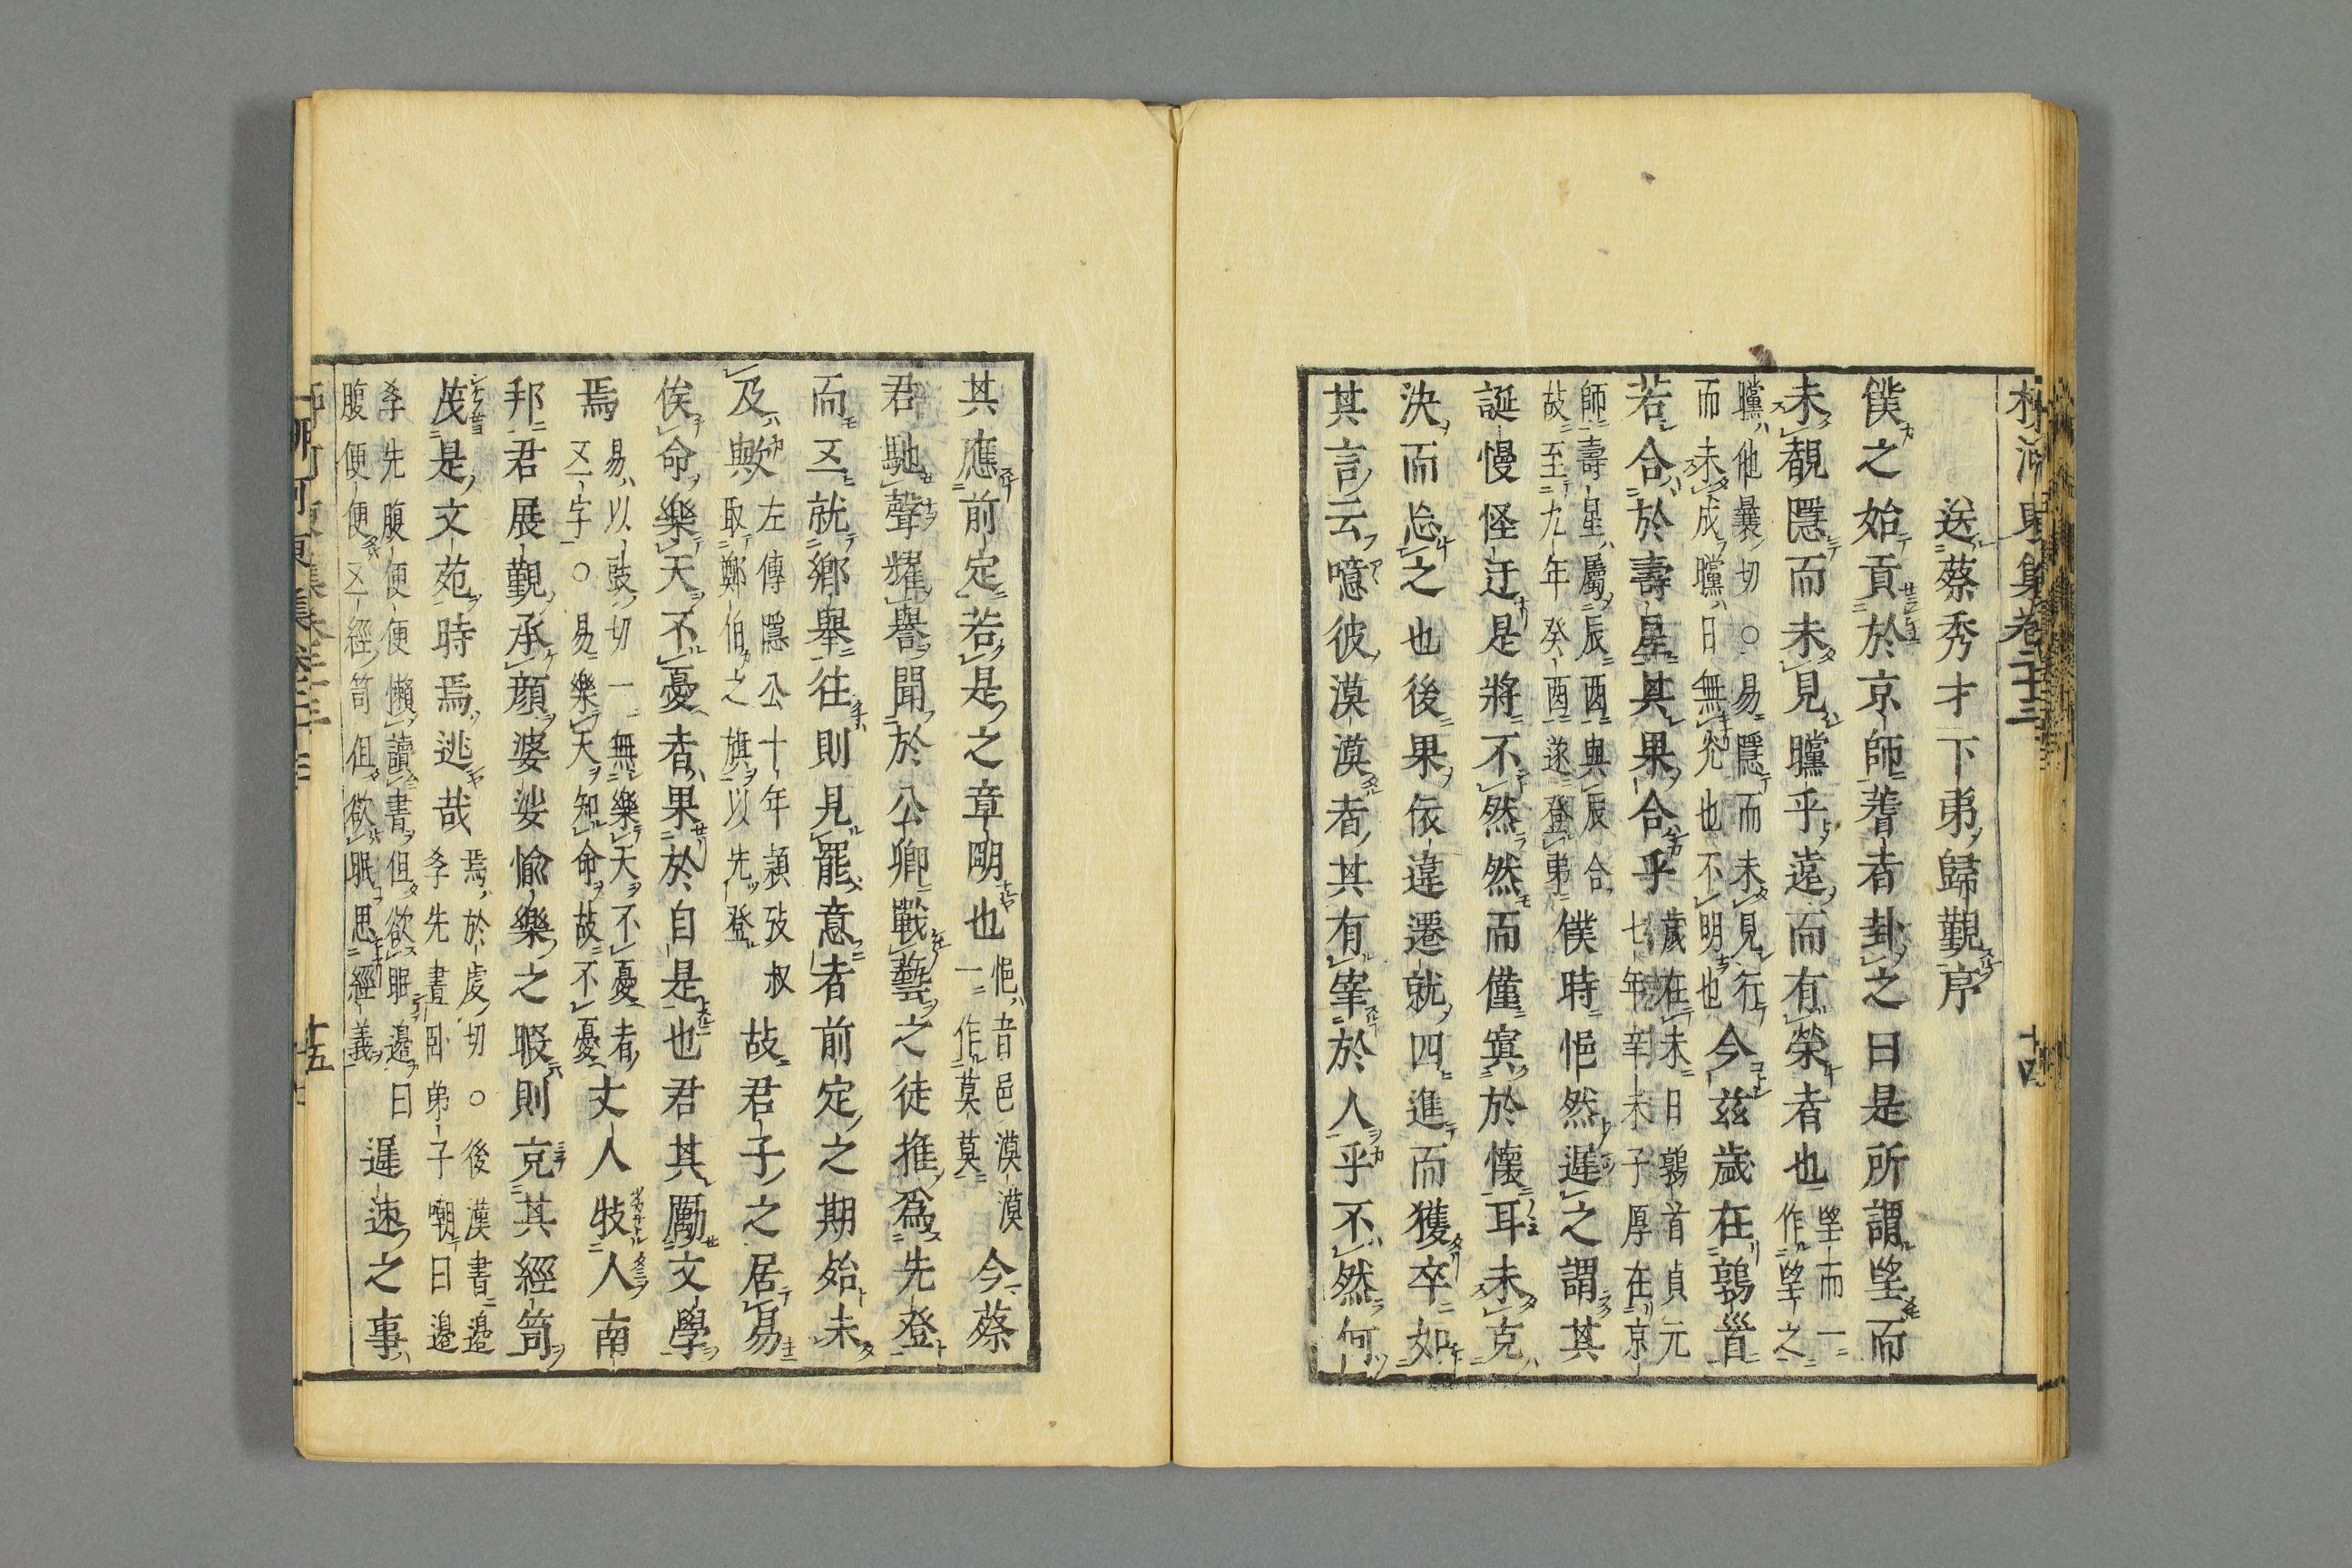 柳河東集卷二十三 十四
送蔡秀才下弟歸覲序
僕之始貢於京師蓍者卦之曰是所謂望而
未覩隱而未見曭乎遠而有榮者也望而一作望之
曭他曩切○易隱而未見行而未成曭日無光也不明也今茲歲在鶉首
若合於壽星其果合乎歲在未曰鶉首貞元七年辛未子厚在京
師壽星屬辰酉與辰合故至九年癸酉遂登弟僕時悒然遲之謂其
誕慢怪迂是將不然然而僅寘於懷耳未克
決而忘之也後果依違遷就四進而獲卒如
其言云噫彼漠漠者其有宰於人乎不然何
其應前定若是之章明也悒音邑漠漠一作莫莫今蔡
君馳聲耀譽聞於公卿戰藝之徒推為先登
而又就鄉舉往則見罷意者前定之期殆未
及歟左傳隱公十年潁考叔取鄭伯之旗以先登故君子之居易
俟命樂天不憂者果於自是也君其勵文學
焉易以豉切一無樂天不憂者又字○易樂天知命故不憂丈人牧人南
邦君展覲承顏婆娑愉樂之暇則克其經笥
茂是文苑時焉逃哉焉於虔切○後漢書邊孝先晝卧弟子嘲曰邊
孝先腹便便懶讀書但欲眠邊曰腹便便又經笥但欲眠思經義遲速之事
十五